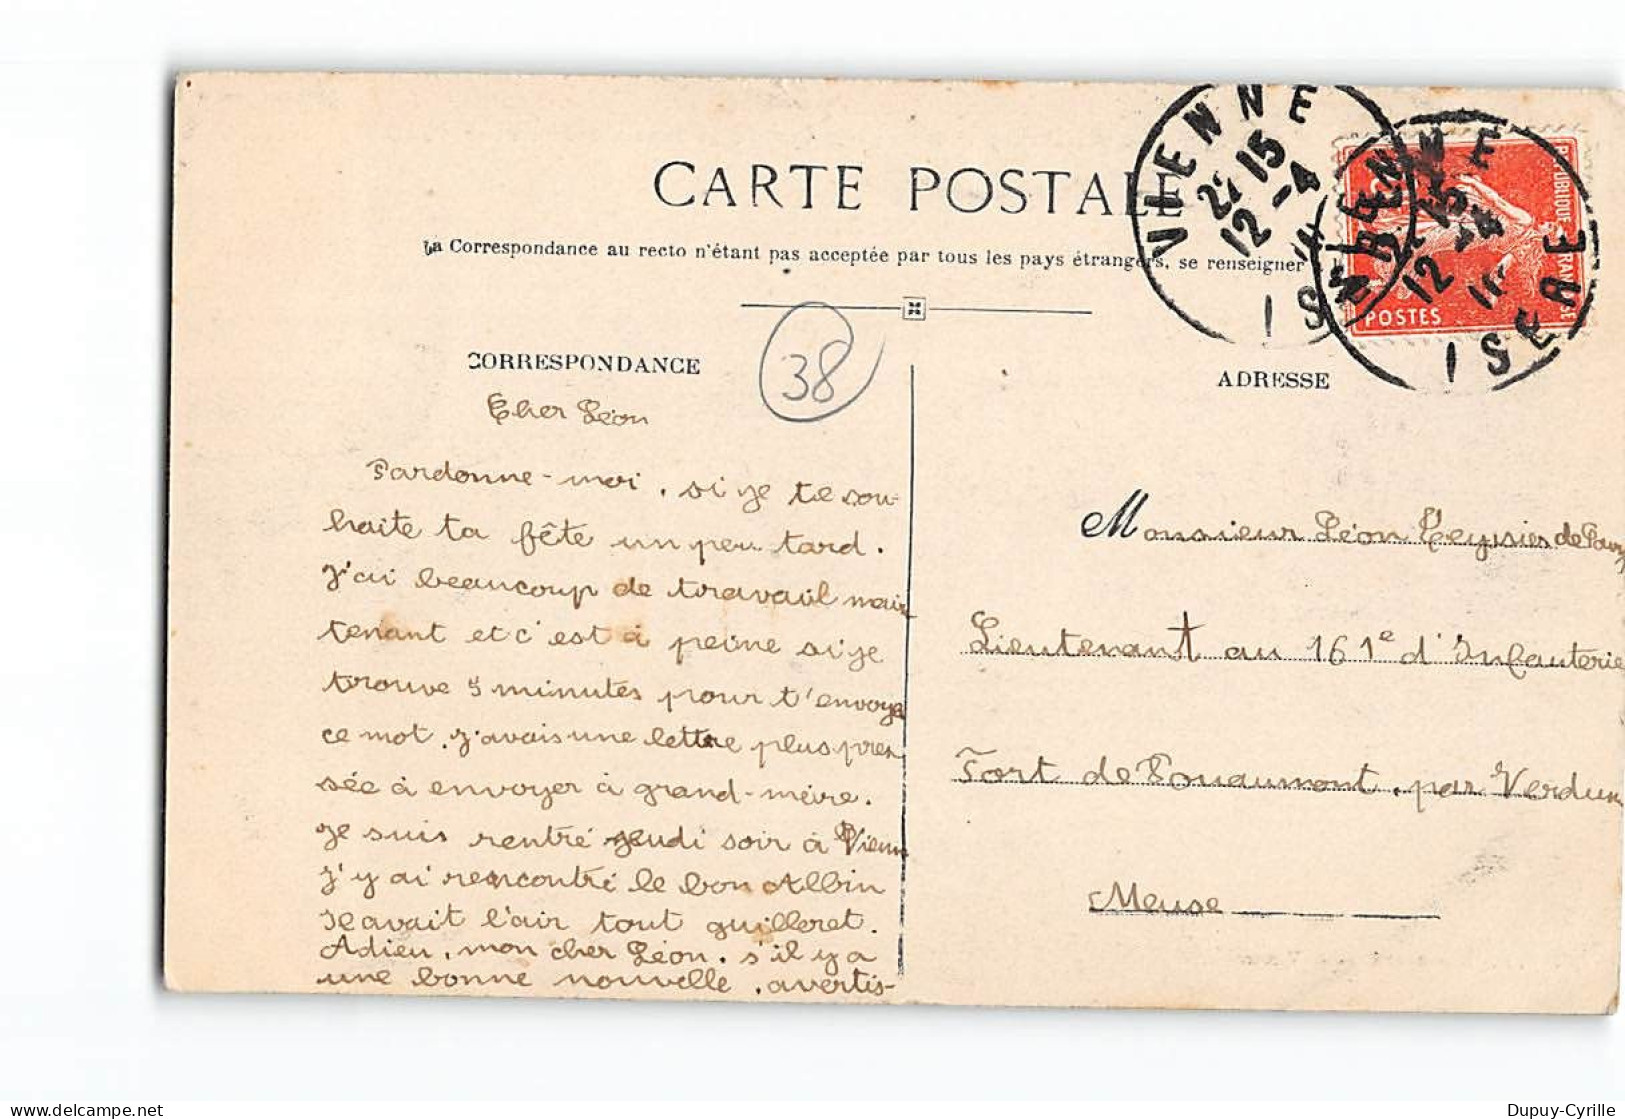 CARTE POSTALE
La Correspondance au recto n'étant pas acceptée par tous les pays étrangers, se renseigner
VIENNE
22 15
12 -4
ISÈRE
VIENNE
15
12 -4
ISÈRE
REPUBLIQUE FRANÇAISE
POSTES
38
CORRESPONDANCE
ADRESSE
Cher Léon
Pardonne-moi, si je te sou-
haite ta fête un peu tard.
J'ai beaucoup de travail main
tenant et c'est à peine si je
trouve 5 minutes pour t'envoyer
ce mot. J'avais une lettre plus pres
sée à envoyer à grand-mère.
Je suis rentré jeudi soir à Vienne
J'y ai rencontré le bon Albin
Il avait l'air tout guilleret.
Adieu, mon cher Léon, s'il y a
une bonne nouvelle, avertis-
Monsieur Léon Teysier de
Lieutenant au 161e d'Infanterie
Fort de Douaumont, par Verdun
Meuse
Dupuy-Cyrille